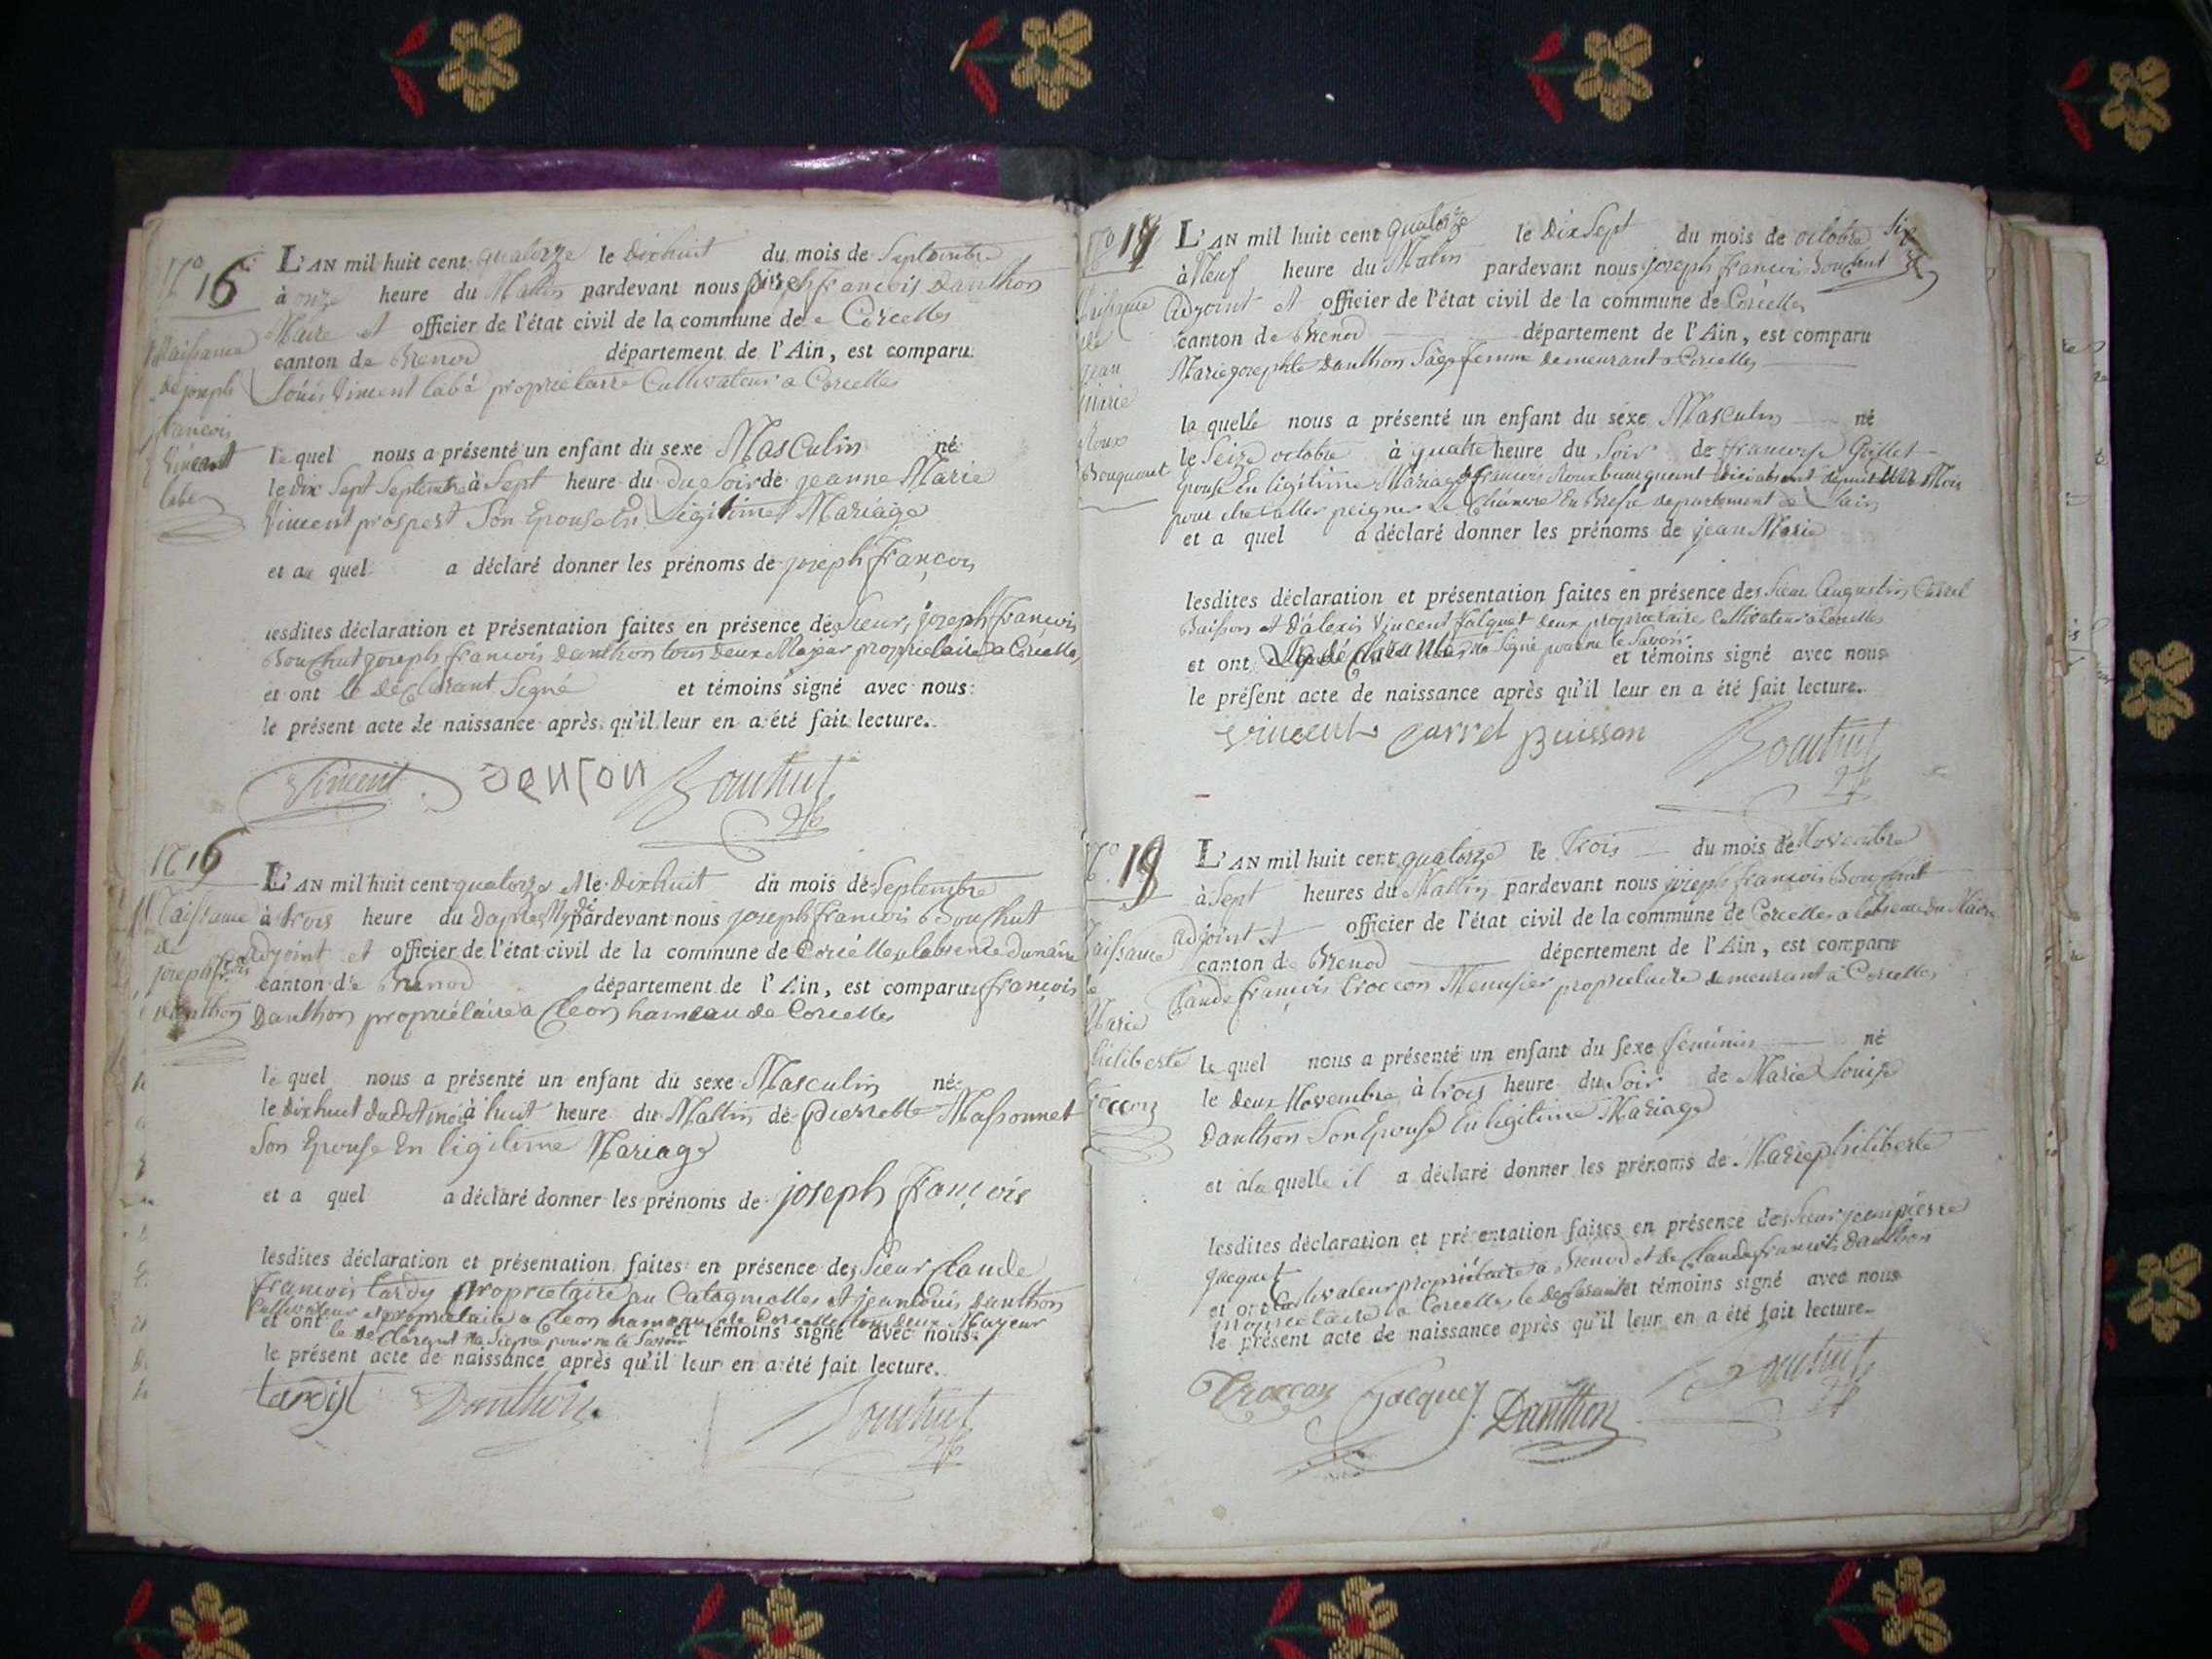 No 16
Naissance
de joseph
francois
Vincent
labe
L'AN mil huit cent quatorze le dixhuit du mois de Septembre
à onze heure du Mattin pardevant nous joseph francois Danthon
Maire et officier de l'état civil de la commune de Corcelles
canton de Brenod département de l'Ain, est comparu
Louis Vincent labé propriétaire Cultivateur a Corcelles
le quel nous a présenté un enfant du sexe Masculin né
le dix Sept Septembre à Sept heure du du Soir de jeanne Marie
Vincent prospert Son Epouse En Légitime Mariage
et au quel a déclaré donner les prénoms de joseph François
lesdites déclaration et présentation faites en présence de Sieur, joseph François
Bouchut joseph francois Danthon tous deux Majeur propriétaire a Corcelles
et ont le déclarant Signé et témoins signé avec nous
le présent acte de naissance après qu'il leur en a été fait lecture.
Vincent Denton Bouchut
No 16
Naissance
de
joseph
Danthon
L'AN mil huit cent quatorze et le dixhuit du mois de Septembre
à trois heure du Daprès Mydi pardevant nous joseph francois Bouchut
adjoint et officier de l'état civil de la commune de Corcelles a labsence du maire
canton de Brenod département de l'Ain, est comparu françois
Danthon propriétaire a Cleon hameau de Corcelles
le quel nous a présenté un enfant du sexe Masculin né
le dixhuit dudt mois à huit heure du Mattin de pierrette Massonnet
Son Epouse En ligitime Mariage
et a quel a déclaré donner les prénoms de joseph françois
lesdites déclaration et présentation faites en présence des Sieur Claude
françois tardy propriétaire au Catagnolles et jean louis Danthon
Cultivateur et propriétaire a Cleon hameau de Corcelles tous deux Mayeur
et ont le déclarant na Signé pour ne le Savoir et témoins signé avec nous
le présent acte de naissance après qu'il leur en a été fait lecture.
tardist Danthon Bouchut
No 18
Naissance
de
jean
Marie
Roux
Bouquenet
L'AN mil huit cent quatorze le dix Sept du mois de octobre
à Neuf heure du Matin pardevant nous joseph francois Bouchut
adjoint et officier de l'état civil de la commune de Corcelles
canton de Brenod département de l'Ain, est comparu
Marie josephte Danthon Sage femme demeurant a Corcelles
la quelle nous a présenté un enfant du sexe Masculin né
le Seize octobre à quatre heure du Soir de francoise Gollet
Epouse En ligitime Mariage de francois Roux absent depuis un Mois
pour aller peigner Le Chanvre En Bresse departement de Lain
et a quel a déclaré donner les prénoms de jean Marie
lesdites déclaration et présentation faites en présence des Sieur Augustin Carrel
Buisson et d'alexis Vincent falquet deux propriétaires Cultivateur a Corcelles
et ont na Signé pour ne le Savoir et témoins signé avec nous
le présent acte de naissance après qu'il leur en a été fait lecture.
Vincent carrel Buisson Bouchut
No 19
Naissance
de
Marie
philiberte
Troccon
L'AN mil huit cent quatorze le trois du mois de Novembre
à Sept heures du Mattin pardevant nous joseph francois Bouchut
adjoint et officier de l'état civil de la commune de Corcelles a labsence du Maire
canton de Brenod département de l'Ain, est comparu
Claude françois troccon Menusier propriétaire demeurant a Corcelles
le quel nous a présenté un enfant du sexe féminin né
le deux Novembre à trois heure du Soir de Marie Louise
Danthon Son Epouse En ligitime Mariage
et à la quelle il a déclaré donner les prénoms de Marie philiberte
lesdites déclaration et présentation faites en présence des Sieur jean pierre
Jacquet Cultivateur propriétaire a Brenod et de Claude francois Danthon
et ont propriétaire a Corcelles le declarant et témoins signé avec nous
le présent acte de naissance après qu'il leur en a été fait lecture.
Troccon Jacquet Danthon Bouchut